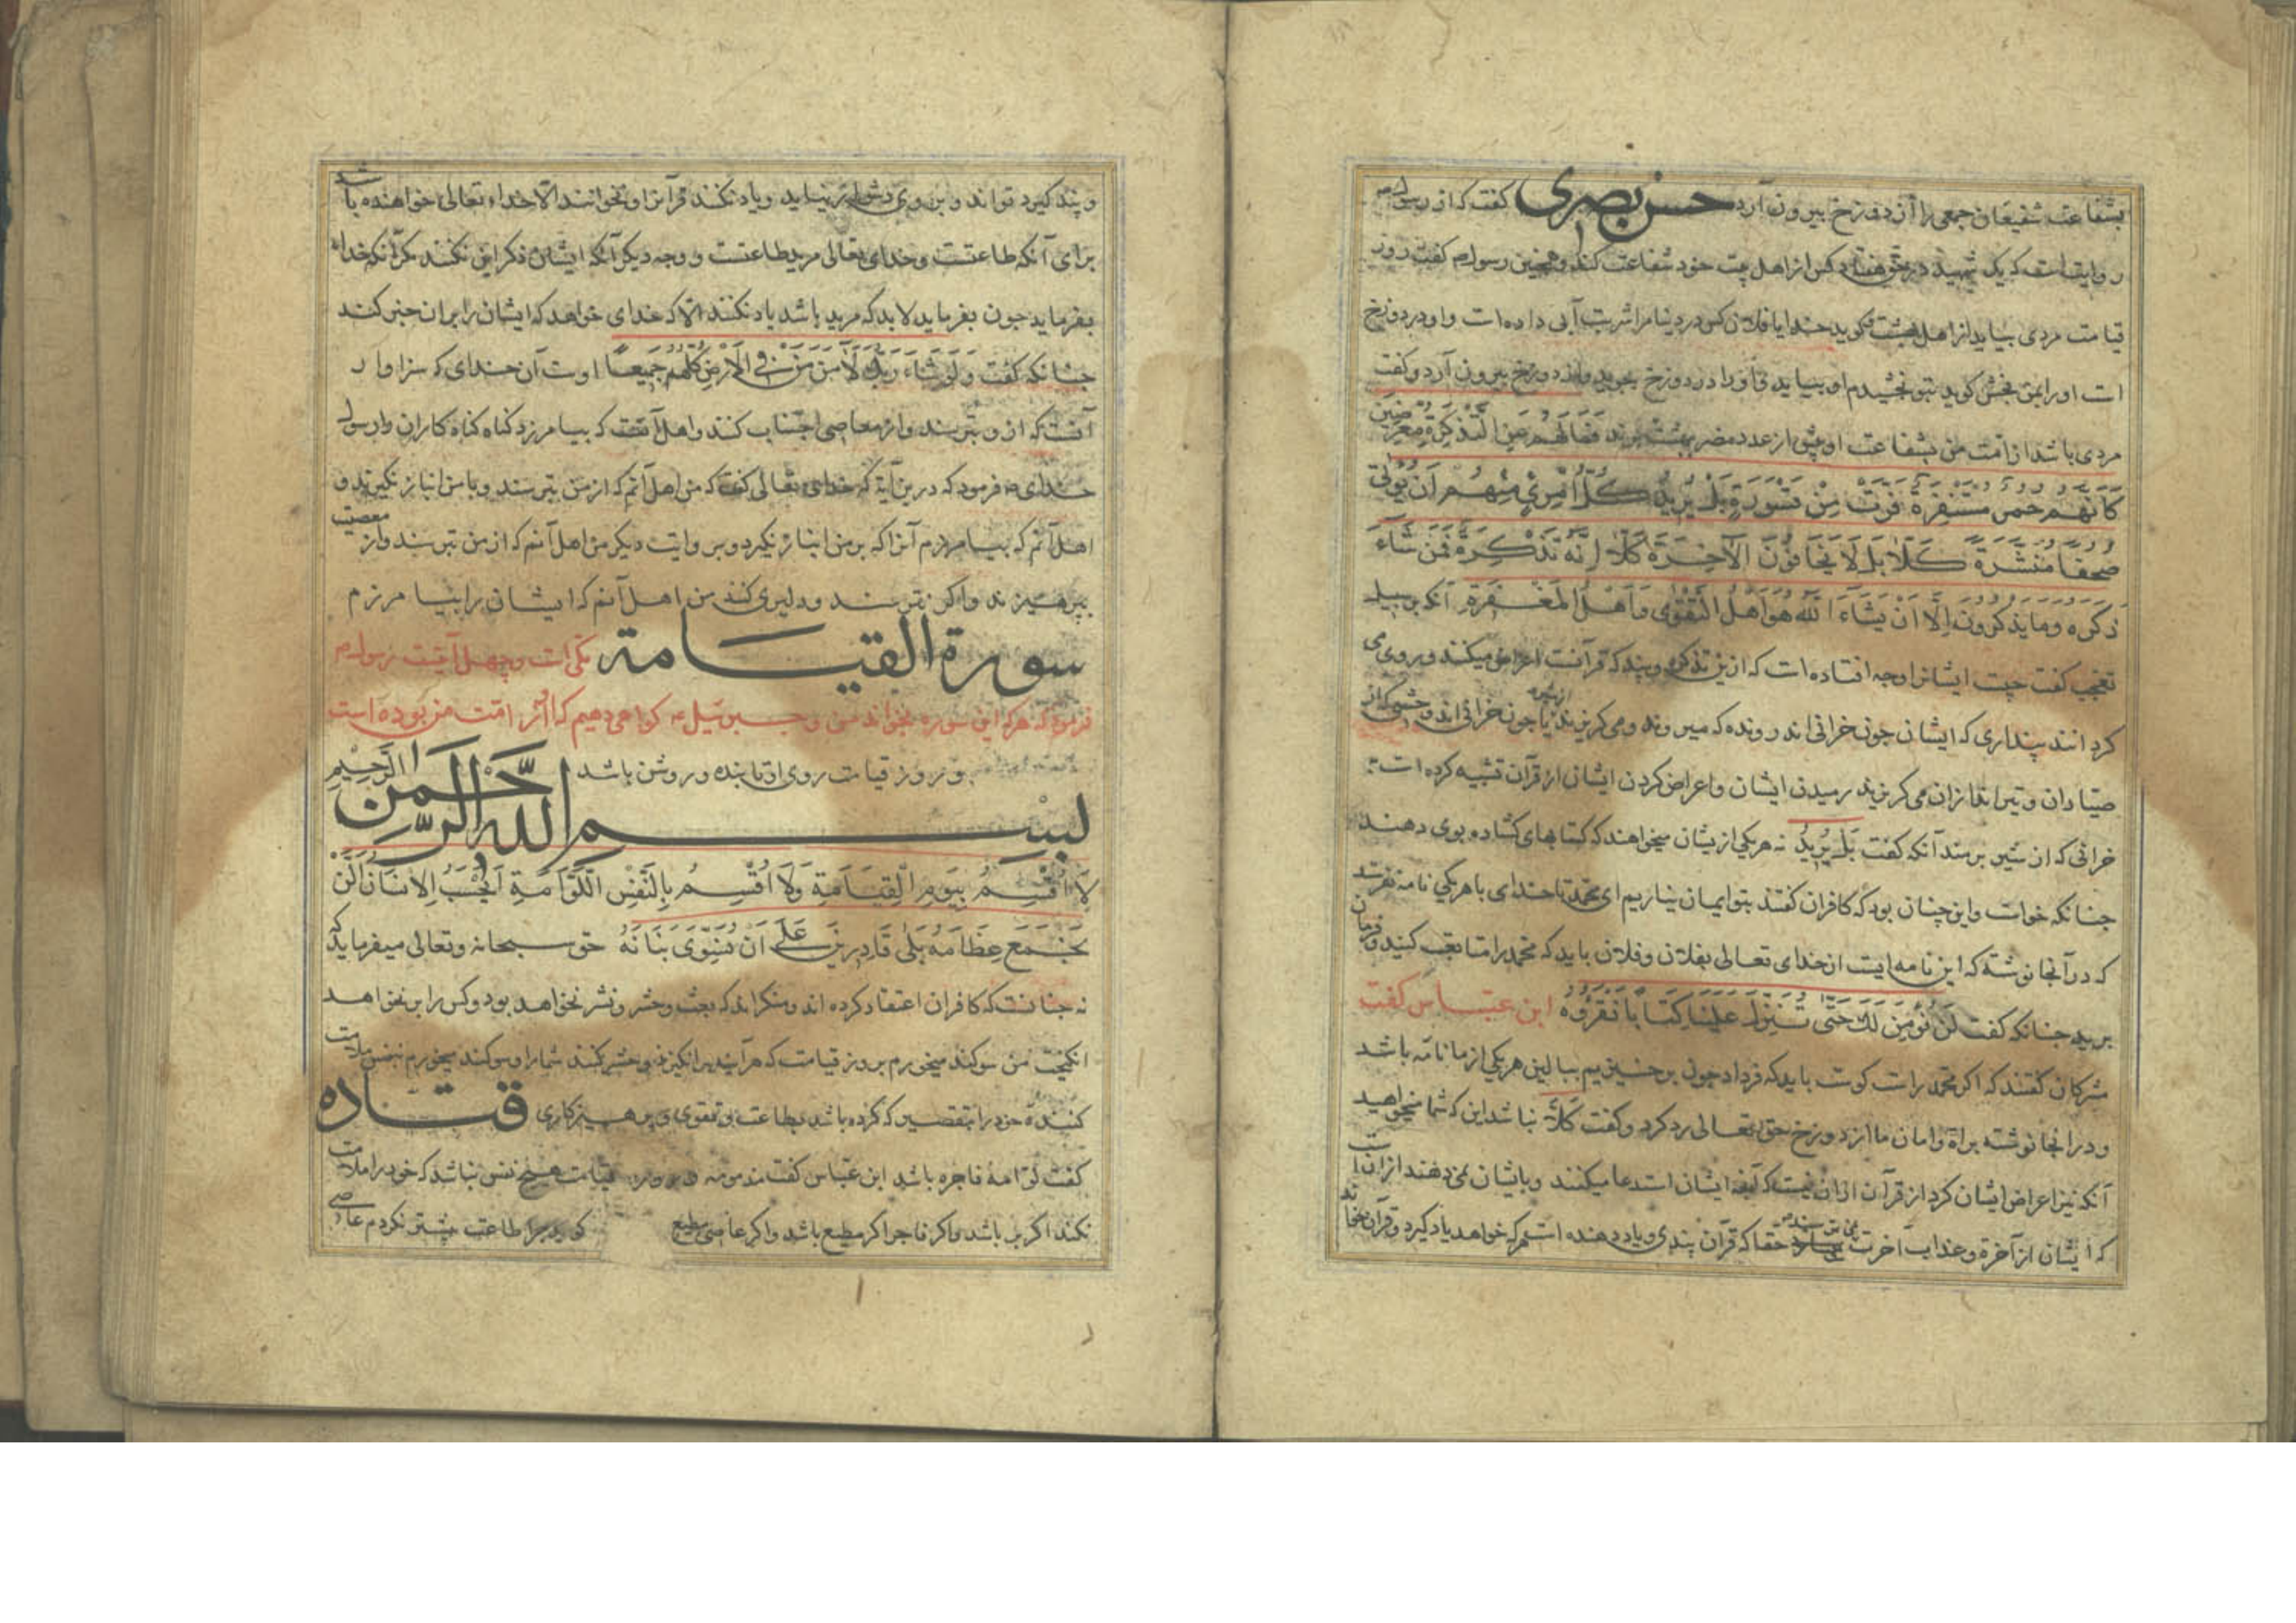 بشفاعت شفیعان جمعی را از دوزخ بیرون آرد حسن بصری گفت که از رسول م
روایتست که یک شهید در حق هفتاد کس از اهل بیت خود شفاعت کند و همچنین رسول م گفت روز
قیامت مردی بیاید از اهل بهشت گوید خدایا فلان کس در دنیا مرا شربت آبی داده است و او در دوزخ
است او را بمن بخش گوید بتو بخشیدم او بیاید و او را در دوزخ بجوید و از دوزخ بیرون آرد و گفت
مردی باشد از امت من بشفاعت او بیش از عدد مضر ببهشت برند فَمَا لَهُمْ عَنِ التَّذْكِرَةِ مُعْرِضِينَ
كَأَنَّهُمْ حُمُرٌ مُسْتَنْفِرَةٌ فَرَّتْ مِنْ قَسْوَرَةٍ بَلْ يُرِيدُ كُلُّ امْرِئٍ مِنْهُمْ أَنْ يُؤْتَى
صُحُفًا مُنَشَّرَةً كَلَّا بَلْ لَا يَخَافُونَ الْآخِرَةَ كَلَّا إِنَّهُ تَذْكِرَةٌ فَمَنْ شَاءَ
ذَكَرَهُ وَمَا يَذْكُرُونَ إِلَّا أَنْ يَشَاءَ اللَّهُ هُوَ أَهْلُ التَّقْوَى وَأَهْلُ الْمَغْفِرَةِ آنکه بر سبیل
تعجب گفت چیست ایشانرا و چه افتاده است که ازین تذکره و پند که قرآنست اعراض میکنند و روی می
کردانند پنداری که ایشان چون خرانی اند رونده که میروند و می کریزند یا چون خرانی اند وحشی که از
صیادان و تیراندازان می کریزند رمیدن ایشان و اعراض کردن ایشان از قرآن تشبیه کرده است به
خرانی که از شیر برمند آنکه گفت بَلْ يُرِيدُ نه هر یکی ازیشان میخواهند که کتابهای کشاده بوی دهند
جنانکه خواست و این چنان بود که کافران گفتند بتو ایمان نیاریم ای محمد تا خدای با هر یکی نامه نفرستد
که در آنجا نوشته که این نامه ایست از خدای تعالی بفلان و فلان باید که محمد را متابعت کنید و فرمان
برید جنانکه گفت لَنْ نُؤْمِنَ لَكَ حَتَّى تُنَزِّلَ عَلَيْنَا كِتَابًا نَقْرَؤُهُ ابن عباس گفت
مشرکان گفتند که اکر محمد راست گوست باید که فردا چون برخیزیم ببالین هر یکی از ما نامه باشد
و در انجا نوشته براة و امان ما از دوزخ حق تعالی رد کرد و گفت كَلَّا نباشد این که شما میخواهید
آنکه نیز اعراض ایشان کرد از قرآن از آن نیست که آنچه ایشان استدعا میکنند و بایشان نمی دهند از آنست
که ایشان از آخرة و عذاب آخرت نمی ترسند حقا که قرآن پندی و یاد دهنده است هر که خواهد یاد کیرد و قرآن بخواند
و پند کیرد تواند و بر وی دشوار نیاید و یاد نکند قرآن او نخوانند الّا خداء تعالی خواهنده باشد
برای آنکه طاعتست و خدای تعالی مرید طاعتست و وجه دیکر آنکه ایشان ذکر این نکنند مکر آنکه خداء
بفرماید جون بفرماید لابد که مرید باشد یاد نکنند الّا که خدای خواهد که ایشان را بران جبر کند
جنانکه گفت وَلَوْ شَاءَ رَبُّكَ لَآمَنَ مَنْ فِي الْأَرْضِ كُلُّهُمْ جَمِيعًا اوست آن خدای که سزاوار
آنست که از و بترسند و از معاصی اجتناب کنند و اهل آنست که بیامرزد کناه کناه کاران و از رسول
خدای م فرمود که درین آیة که خدای تعالی گفت که من اهل آنم که از من بترسند و با من انباز نکیرند و
اهل آنم که بیامرزم آنرا که بر من انباز نکیرد و بر وایت دیکر من اهل آنم که از من بترسند و از معصیت
بپرهیزند و اکر نترسند و دلیری کنند من اهل آنم که ایشان را بیامرزم
سورة القیامة مکی است و چهل آیتست رسول م
فرمود که هر که این سوره بخواند من و جبرئیل م کواهی دهیم که از امت من بوده است
و روز قیامت روی او تابنده و روشن باشد
بسم الله الرحمن الرحیم
لَا أُقْسِمُ بِيَوْمِ الْقِيَامَةِ وَلَا أُقْسِمُ بِالنَّفْسِ اللَّوَّامَةِ أَيَحْسَبُ الْإِنْسَانُ أَلَّنْ
نَجْمَعَ عِظَامَهُ بَلَى قَادِرِينَ عَلَى أَنْ نُسَوِّيَ بَنَانَهُ حق سبحانه و تعالی میفرماید که
نه جنانست که کافران اعتقاد کرده اند و منکر اند که بعث و حشر و نشر نخواهد بود و کس را بر نخواهد
انکیخت من سوکند میخورم بروز قیامت که هر آینه برانکیزند و حشر کنند شما را و سوکند میخورم بنفس ملامت
کننده خود را بتقصیر که کرده باشد بطاعت و تقوی و پرهیزکاری قتاده
گفت لوامه فاجره باشد ابن عباس گفت مذمومه و در روز قیامت هیچ نفس نباشد که خود را ملامت
نکند اکر بر باشد و اکر فاجر اکر مطیع باشد و اکر عاصی مطیع کوید چرا طاعت بیشتر نکردم عاصی